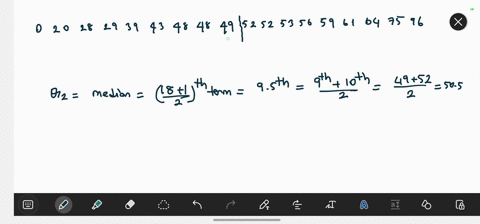 0 20 28 29 39 43 48 48 49 | 52 52 53 56 59 61 64 75 96
Q2 = median = ((18+1)/2)^th term = 9.5^th = (9^th + 10^th)/2 = (49+52)/2 = 50.5